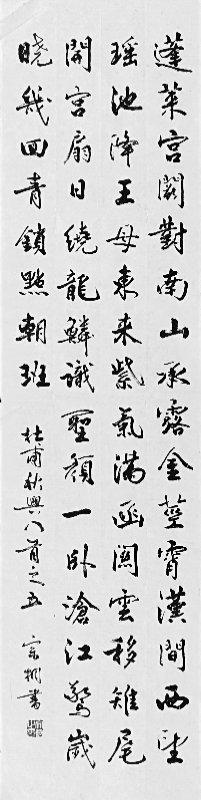 蓬萊宮闕對南山承露金莖霄漢間西望
瑤池降王母東来紫氣滿函関雲移雉尾
開宮扇日繞龍鱗識聖顏一卧滄江驚歲
晚幾回青鎖點朝班
杜甫秋興八首之五 宗 書